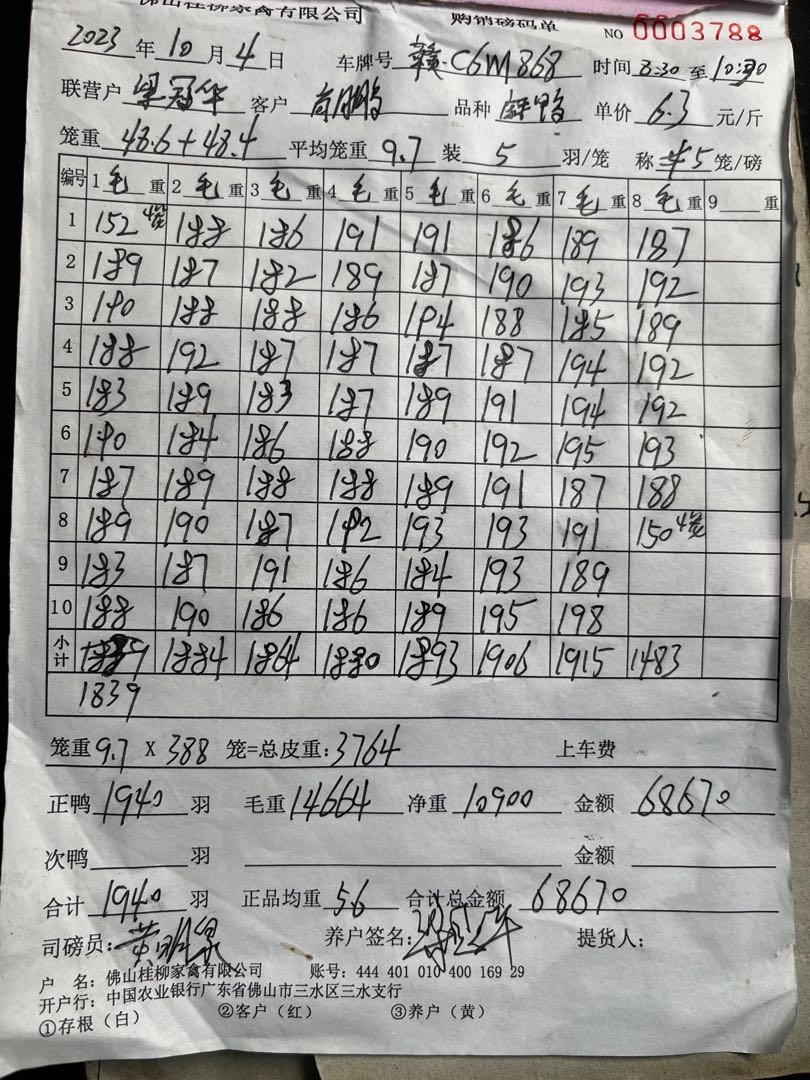 佛山桂柳家禽有限公司 购销磅码单 NO 0003788
2023 年 10 月 4 日 车牌号 赣·C6M868 时间 8:30 至 10:30
联营户 梁冠华 客户 品种 单价 6.3 元/斤
笼重 48.6+48.4 平均笼重 9.7 装 5 羽/笼 称 5 笼/磅
编号 1 毛 重 2 毛 重 3 毛 重 4 毛 重 5 毛 重 6 毛 重 7 毛 重 8 毛 重 9 重
1 152 4笼 188 186 191 191 186 189 187
2 189 187 182 189 187 190 193 192
3 190 188 188 186 194 188 185 189
4 188 192 187 187 187 187 194 192
5 183 189 183 187 189 191 194 192
6 190 184 186 188 190 192 195 193
7 187 189 188 188 189 191 187 188
8 189 190 187 192 193 193 191 150 4笼
9 183 187 191 186 184 193 189
10 188 190 186 186 189 195 198
小计 1884 1864 1880 1893 1906 1915 1483
1839
笼重 9.7 X 388 笼=总皮重: 3764 上车费
正鸭 1940 羽 毛重 14664 净重 10900 金额 68670
次鸭 羽 金额
合计 1940 羽 正品均重 5.6 合计总金额 68670
司磅员: 养户签名: 提货人:
户 名: 佛山桂柳家禽有限公司 账号: 444 401 010 400 169 29
开户行: 中国农业银行广东省佛山市三水区三水支行
①存根（白） ②客户（红） ③养户（黄）